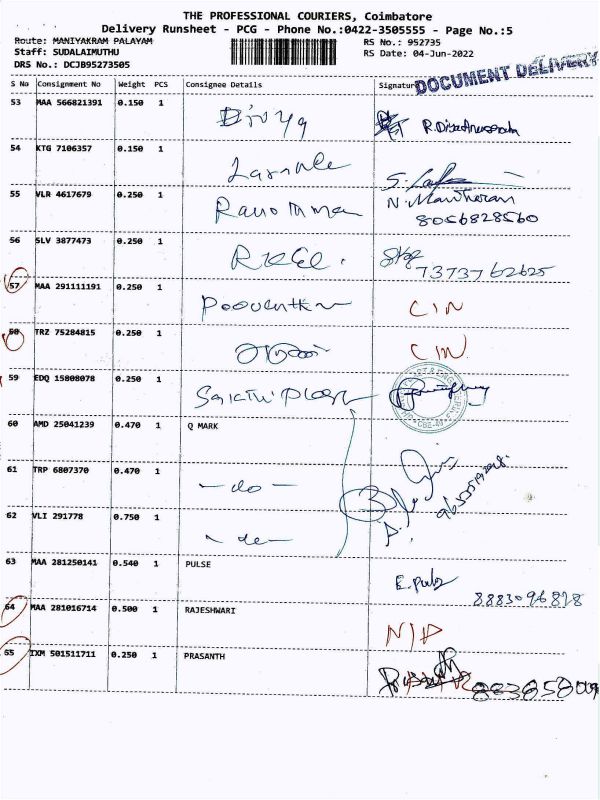 THE PROFESSIONAL COURIERS, Coimbatore
Delivery Runsheet - PCG - Phone No.:0422-3505555 - Page No.:5
Route: MANIYAKRAM PALAYAM
Staff: SUDALAIMUTHU
DRS No.: DCJB95273505
RS No.: 952735
RS Date: 04-Jun-2022
DOCUMENT DELIVERY
S No Consignment No Weight PCS Consignee Details Signature
53 MAA 566821391 0.150 1 Divya
54 KTG 7106357 0.150 1
55 VLR 4617679 0.250 1 N. Manoharan
8056828560
56 SLV 3877473 0.250 1
7373762625
57 MAA 291111191 0.250 1 CIN
58 TRZ 75284815 0.250 1 CIN
59 EDQ 15808078 0.250 1 Sakthi Plast
60 AMD 25041239 0.470 1 Q MARK
61 TRP 6807370 0.470 1 -do-
62 VLI 291778 0.750 1 -do-
3
63 MAA 281250141 0.540 1 PULSE
64 MAA 281016714 0.500 1 RAJESHWARI
65 IXM 501511711 0.250 1 PRASANTH